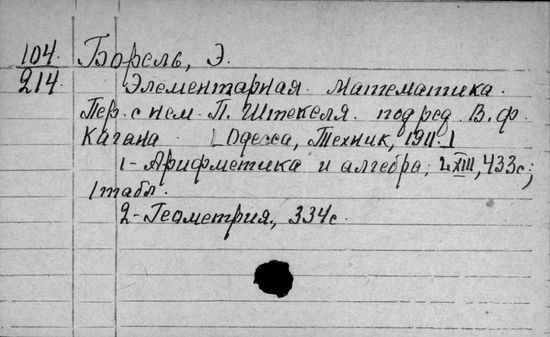 104. Борель, Э.
214 Элементарная математика.
Пер. с нем. П. Штекеля. под ред. В. Ф.
Кагана. [Одесса, Техник, 1911.]
1- Арифметика и алгебра, LXIII, 433с.;
1 табл.
2- Геометрия., 334с.